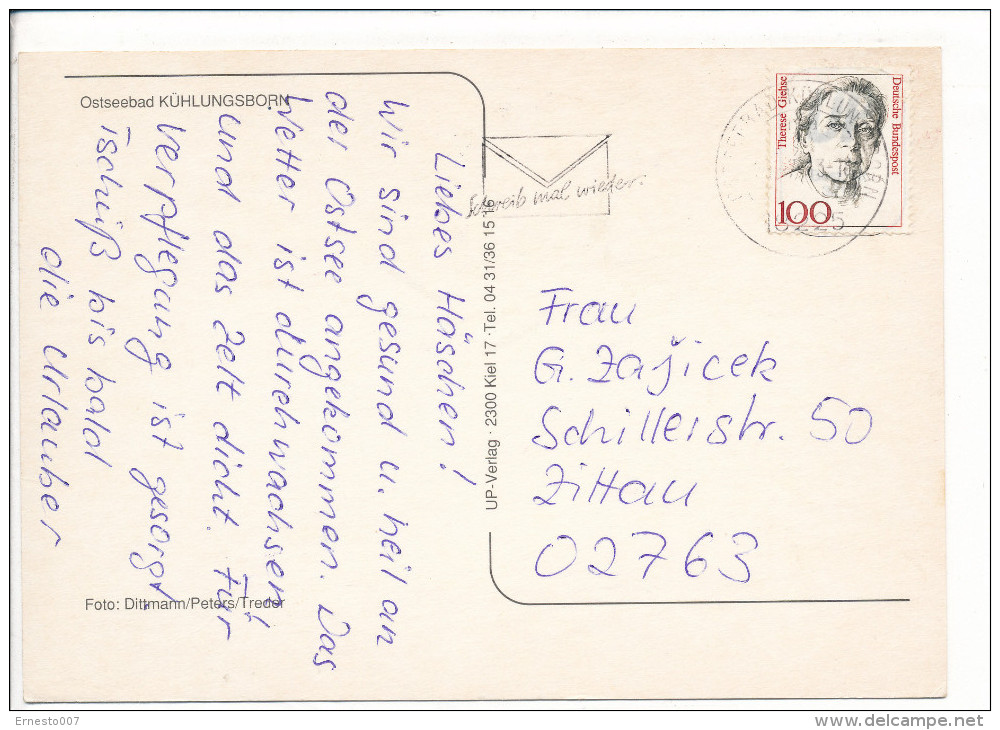 Ostseebad KÜHLUNGSBORN
Liebes Häschen!
Wir sind gesund u. heil an
der Ostsee angekommen. Das
Wetter ist durchwachsen
und das Zelt dicht. Für
Verpflegung ist gesorgt.
Tschüß bis bald
die Urlauber
Foto: Dittmann/Peters/Treder
UP-Verlag · 2300 Kiel 17 · Tel. 04 31/36 15 16
Schreib mal wieder.
Therese Giehse
Deutsche Bundespost
100
Frau
G. Zajicek
Schillerstr. 50
Zittau
02763
Ernesto007
delcampe.net